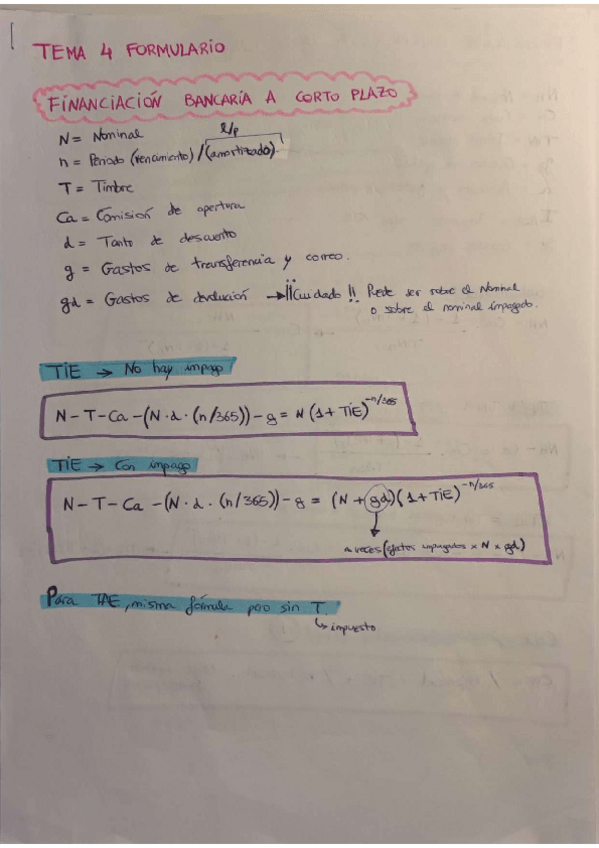 TEMA 4 FORMULARIO
FINANCIACIÓN BANCARIA A CORTO PLAZO
N = Nominal
n = Periodo (vencimiento) / (amortizado).
T = Timbre
Ca = Comisión de apertura
d = Tanto de descuento
g = Gastos de transferencia y correo.
gd = Gastos de devolución → ¡¡Cuidado!! Puede ser sobre el Nominal
o sobre el nominal impagado.
TiE → No hay impago
N - T - Ca - (N · d · (n/365)) - g = N (1 + TiE)^-n/365
TiE → Con impago
N - T - Ca - (N · d · (n/365)) - g = (N + gd)(1 + TiE)^-n/365
a veces (efectos impagados × N × gd)
Para TAE, misma fórmula pero sin T.
↳ impuesto